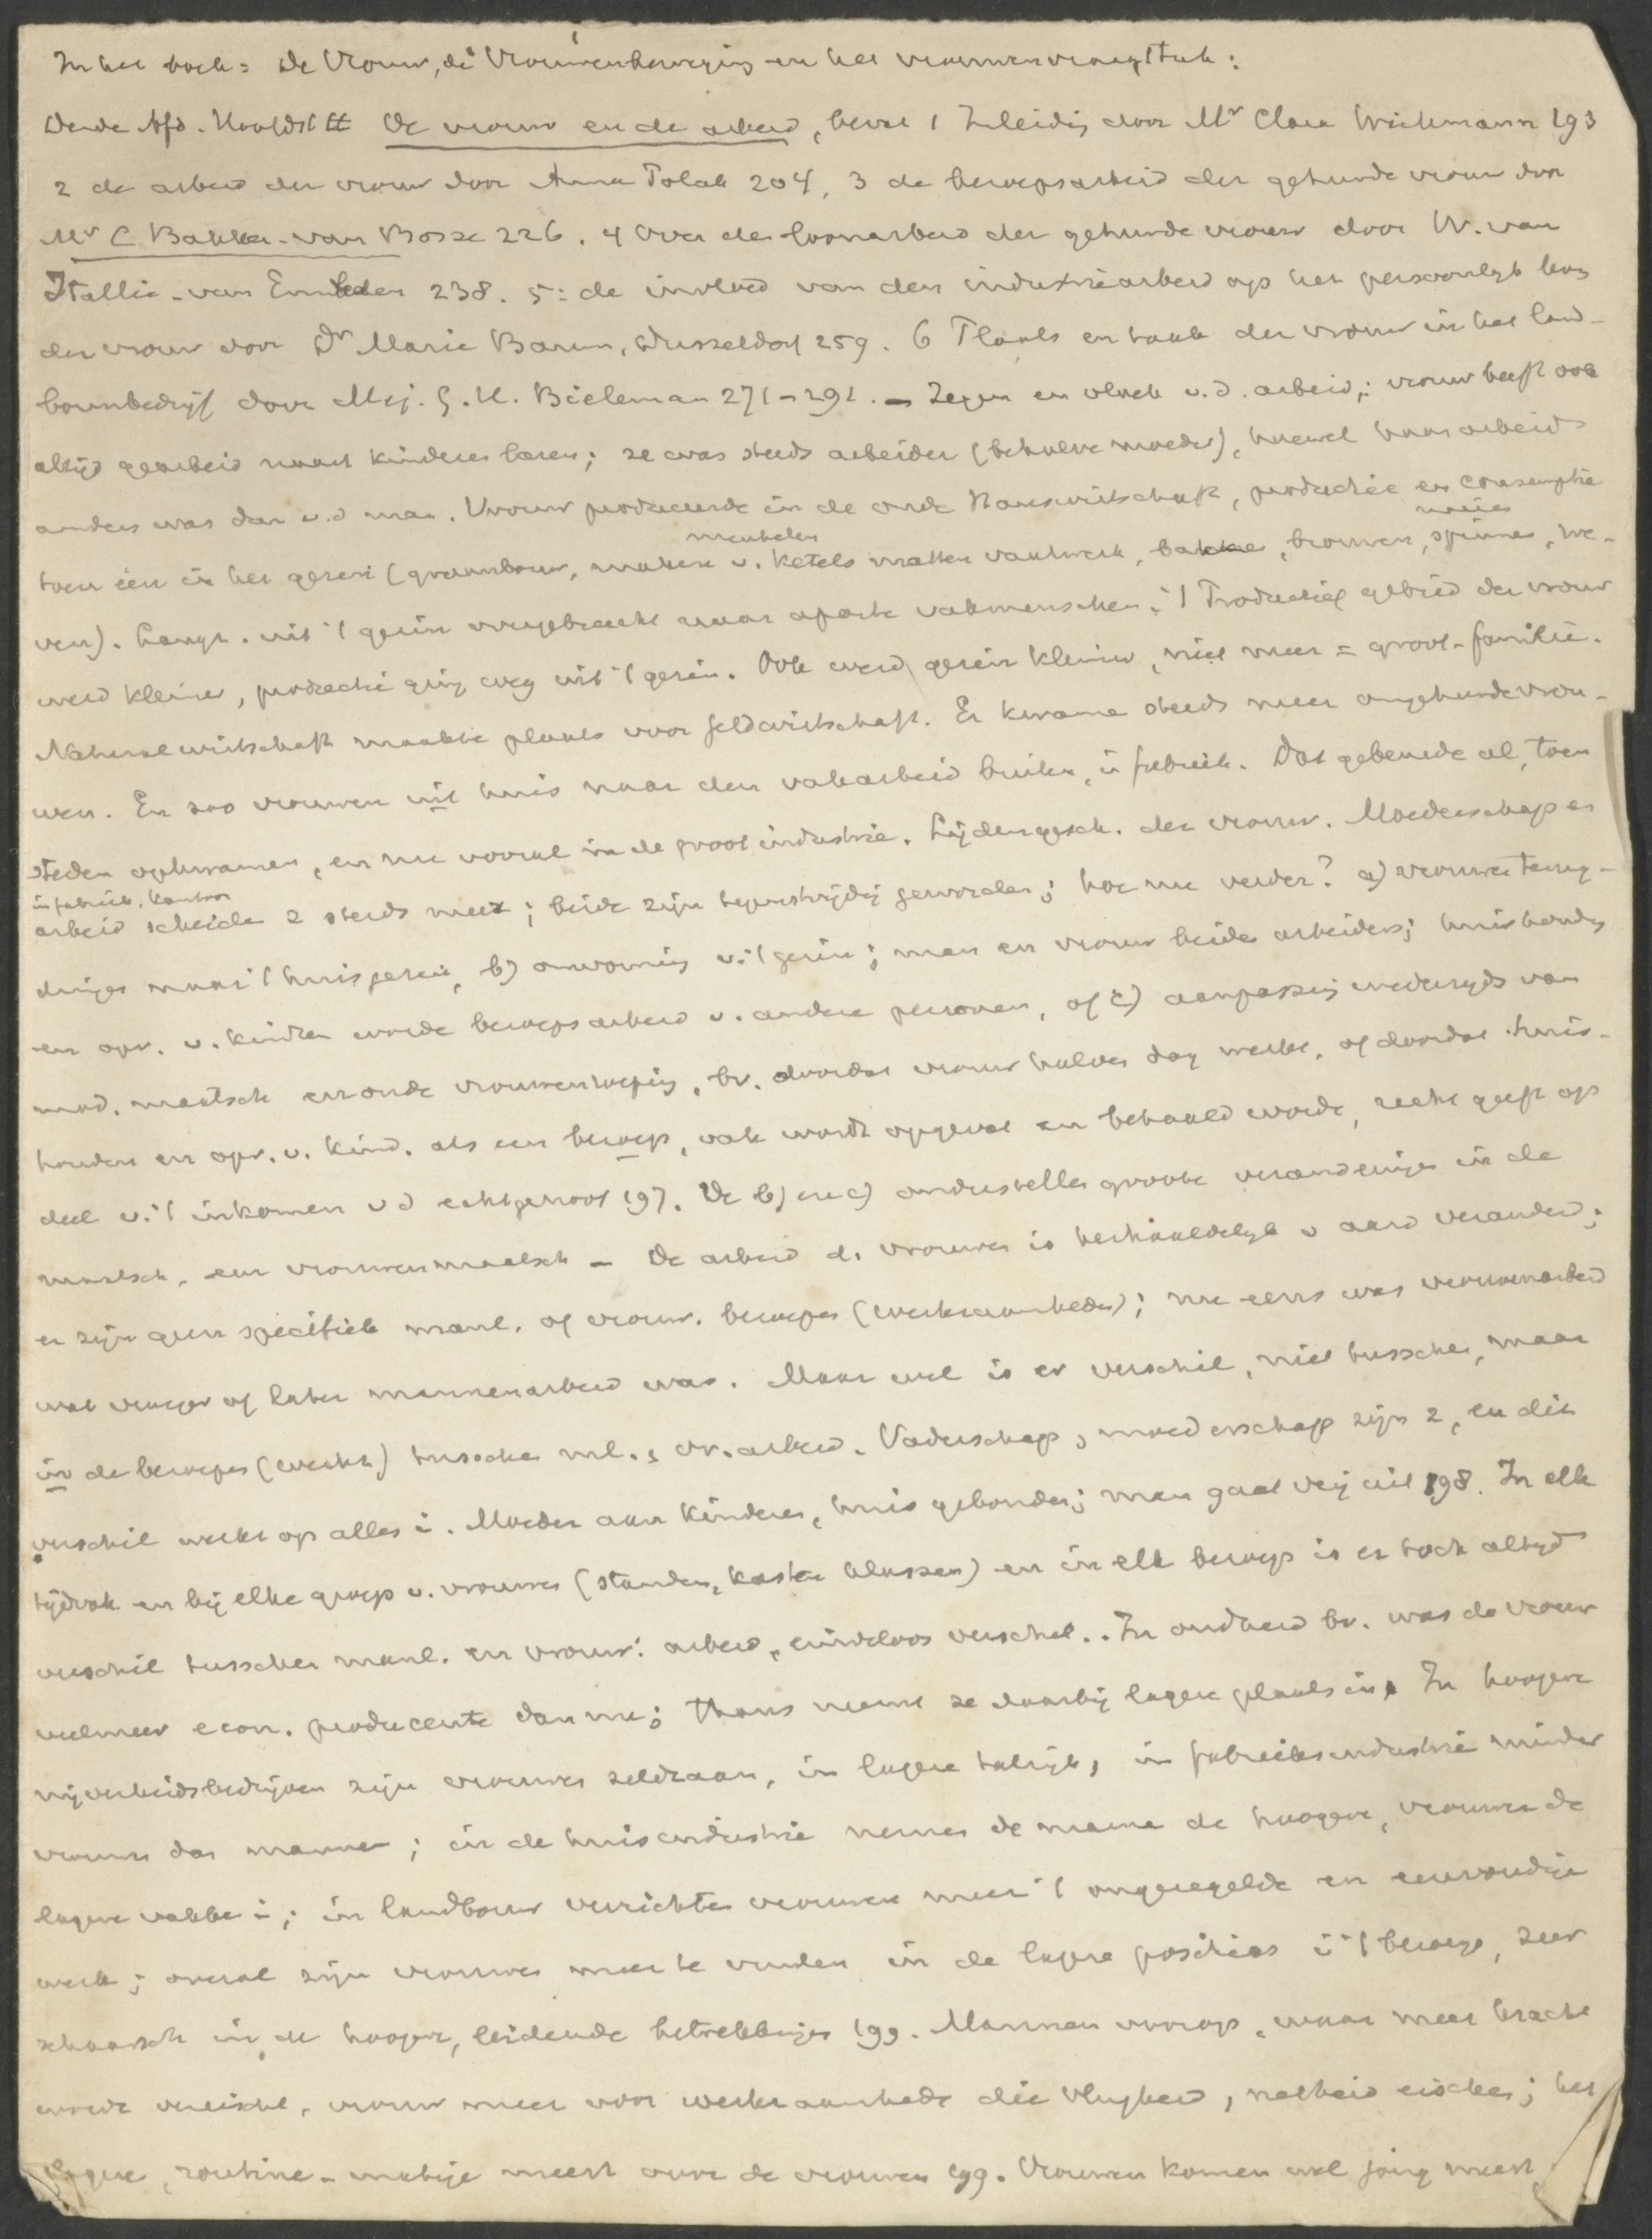 In het boek: De Vrouw, de Vrouwenbeweging en het vrouwenvraagstuk:
Derde Afd. Hoofdst II De vrouw en de arbeid, bevat 1 Inleidig door Mr Clara Wichmann 193
2 de arbeid der vrouw door Anna Polak 204, 3 de beroepsarbeid der gehuwde vrouw door
Mr C Bakker-van Bosse 226. 4 Over den loonarbeid der gehuwde vrouw door W. van
Itallie-van Embden 238. 5: de invloed van den industriearbeid op het persoonlijk leven
der vrouw door Dr Marie Baum, Dusseldorf 259. 6 Plaats en taak der vrouw in het land-
bouwbedrijf door Mej. G. H. Bieleman 271-291. - Zegen en vloek v.d. arbeid; vrouw heeft ook
altijd gearbeid naast kinderen baren; ze was steeds arbeider (behalve moeder), hoewel haar arbeid
anders was dan v.d man. Vrouw produceerde in de oude Hauswirtschaft, productie en consumptie
toen één in het gezin (graanbouw, maken v. ketels meubelen matten vaatwerk, bakken, brouwen, naaien spinnen, we-
ven). Langz. uit 't gezin overgebracht naar aparte vakmenschen. 't Productief gebied der vrouw
werd kleiner, productie ging weg uit 't gezin. Ook werd gezin kleiner, niet meer = groot-familie.
Naturalwirtschaft maakte plaats voor Geldwirtschaft. Er kwamen steeds meer ongehuwde vrou-
wen. En zoo vrouwen uit huis naar den vakarbeid buiten, in fabriek. Dat gebeurde al, toen
steden opkwamen, en nu vooral in de grootindustrie. Lijdensgesch. der vrouw. Moederschap en
arbeid in fabriek, kantoor scheiden z steeds meer; beide zijn tegenstrijdig geworden; hoe nu verder? a) vrouwen terug-
dringen naar 't huisgezin, b) omvorming v. 't gezin; man en vrouw beiden arbeiders; huishouding
en opv. v. kindren worde beroepsarbeid v. andere personen, of c) aanpassing wederzijds van
mod. maatsch en oude vrouwenroeping, bv. doordat vrouw halven dag werkt, of doordat huis-
houden en opv. v. kind. als een beroep, vak wordt opgevat en betaald worde, recht geeft op
deel v. 't inkomen v d echtgenoot 197. De b) en c) onderstellen groote veranderingen in de
maatsch. en vrouwenmaatsch - De arbeid d. vrouwen is herhaaldelijk v aard veranderd;
er zijn geen specifiek manl. of vrouw. beroepen (werkzaamheden); nu eens was vrouwenarbeid
wat vroeger of later mannenarbeid was. Maar wel is er verschil, niet tusschen, maar
in de beroepen (werken) tusschen ml. & vr. arbeid. Vaderschap, moederschap zijn 2, en dit
verschil werkt op alles in. Moeder aan kinderen, huis gebonden; man gaat vrij uit 198. In elk
tijdvak en bij elke groep v. vrouwen (standen, kasten klassen) en in elk beroep is er toch altijd
verschil tusschen manl. en vrouw. arbeid, eindeloos verschil. In oudheid bv. was de vrouw
veelmeer econ. producente dan nu; thans neemt ze daarbij lagere plaats in. In hoogere
nijverheidsbedrijven zijn vrouwen zeldzaam, in lagere talrijk, in fabrieksindustrie minder
vrouwen dan mannen; in de huisindustrie nemen de mannen de hoogere, vrouwen de
lagere vakken in; in landbouw verrichten vrouwen meer 't ongeregelde en eenvoudige
werk; overal zijn vrouwen meer te vinden in de lagere posities in 't beroep, zeer
schaarsch in de hoogere, leidende betrekkingen 199. Mannen voorop, waar meer kracht
wordt vereischt, vrouw meer voor werkzaamheden die vlugheid, netheid eischen; het
lagere, routine-matige meest voor de vrouwen 199. Vrouwen komen wel jong meest